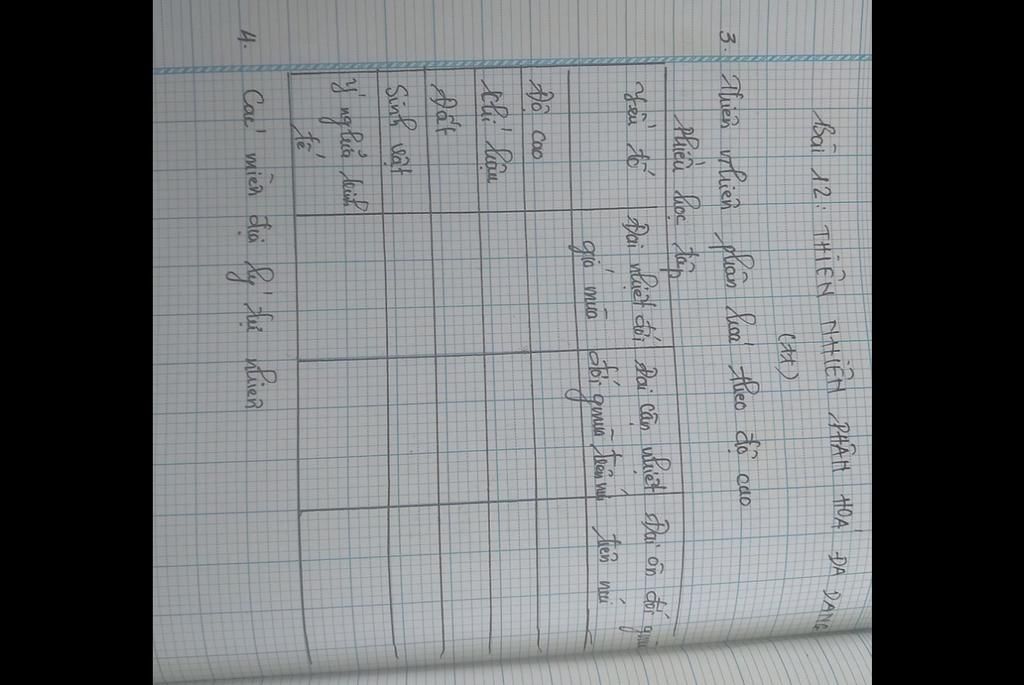 Bài 12: THIÊN NHIÊN PHÂN HOÁ ĐA DẠNG
(tt)
3. Thiên nhiên phân hoá theo độ cao
Phiếu học tập
Yếu tố
Đai nhiệt đới
gió mùa
Đai cận nhiệt
đới gmùa trên núi
Đai ôn đới gmùa
trên núi
Độ cao
Khí hậu
Đất
Sinh vật
Ý nghĩa kinh
tế
4. Các miền địa lý tự nhiên